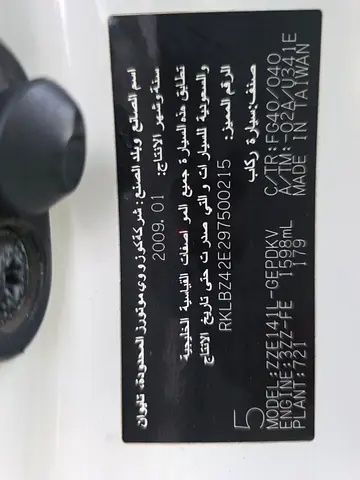 اسم الصانع وبلد الصنع: شركة كوزووي موتورز المحدودة، تايوان
سنة وشهر الانتاج: 2009. 01
تطابق هذه السيارة جميع المواصفات القياسية الخليجية
والسعودية للسيارات والتي صدرت حتى تاريخ الانتاج
الرقم المميز: RKLBZ42E297500215
صنف: سيارة ركاب
5
MODEL: ZZE141L-GEPDKV
ENGINE: 3ZZ-FE 1598mL
PLANT: 721 179
C/TR: FG40/040
A/TM: -02A/U341E
MADE IN TAIWAN